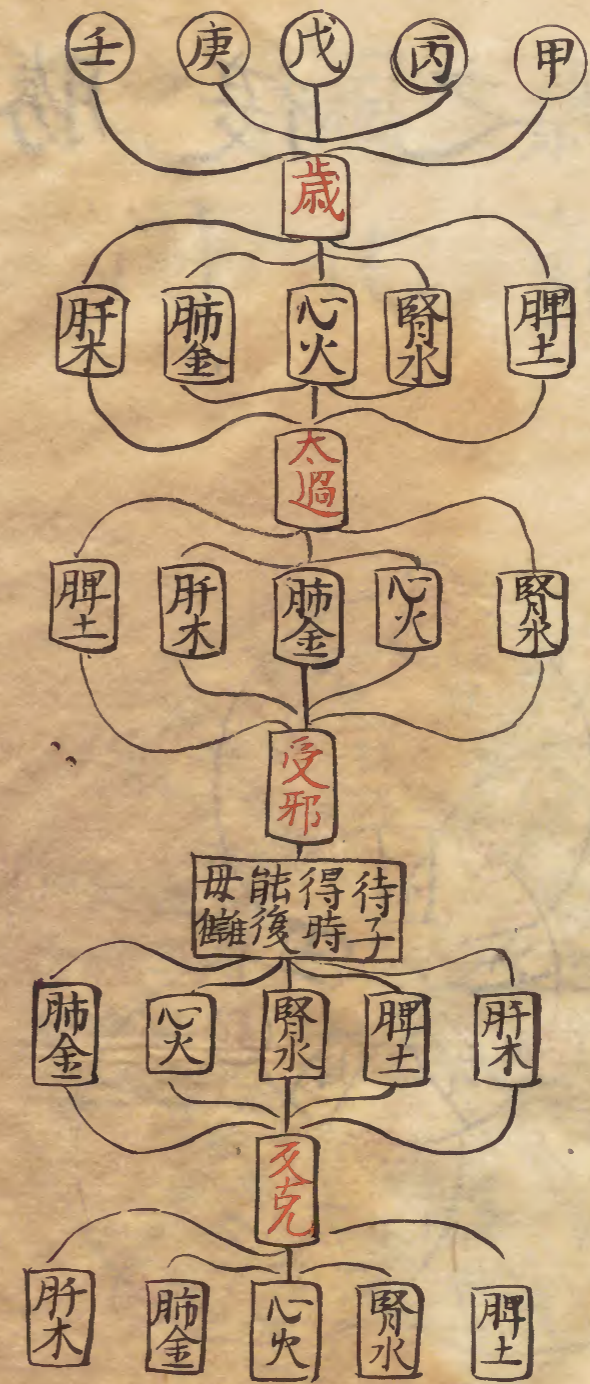 甲 丙 戊 庚 壬
歳
脾土 腎水 心火 肺金 肝木
太過
腎水 心火 肺金 肝木 脾土
受邪
待子
得時
能後
母讎
肝木 脾土 腎水 心火 肺金
反克
脾土 腎水 心火 肺金 肝木